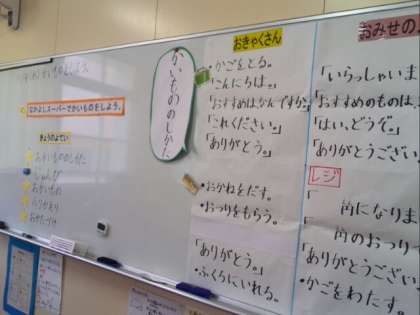 なかよしスーパーでかいものをしよう。
きょうのよてい
かいもののしかた
じゅんび
おかいもの
ふりかえり
おかたづけ
かいもののしかた
おきゃくさん
・かごをとる。
「こんにちは。」
「おすすめはなんですか。」
「これください。」
「ありがとう。」
・おかねをだす。
・おつりをもらう。
「ありがとう。」
・ふくろにいれる。
おみせの
「いらっしゃいま
「おすすめのものは、
「はい、どうぞ。」
「ありがとうござい
レジ
「 円になりま
「 円のおつり
「ありがとうござい
・かごをわたす。